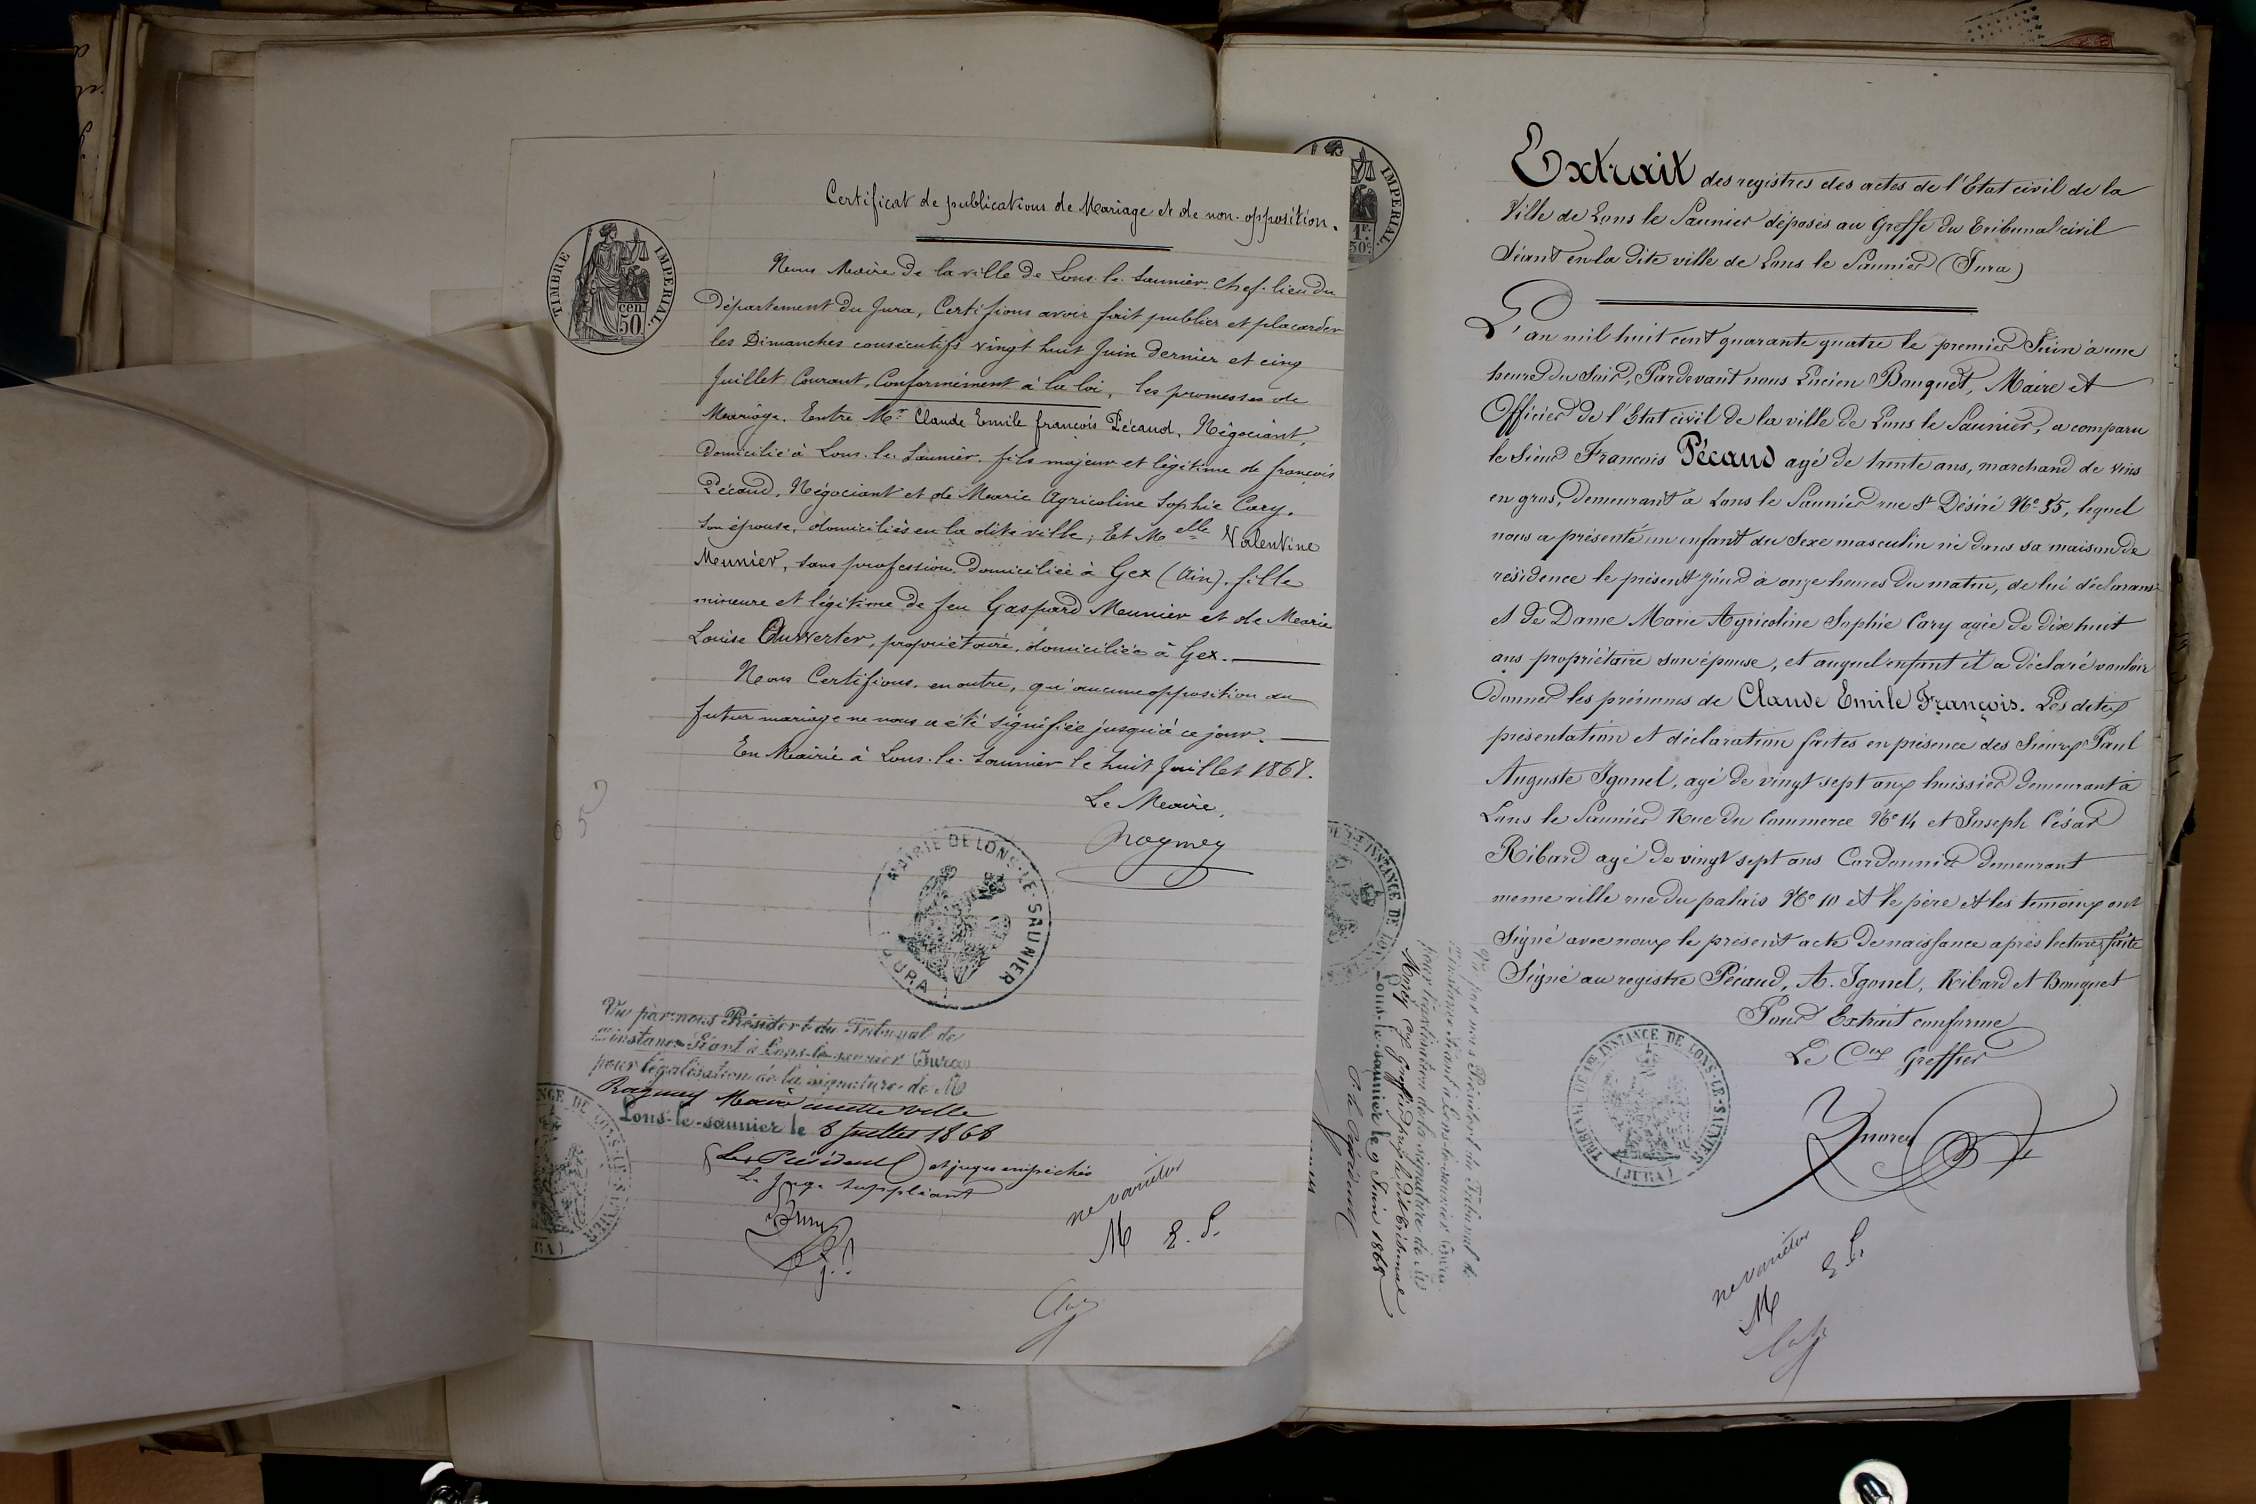 Certificat de publications de Mariage et de non-opposition.
TIMBRE IMPERIAL.
cen. 50.
Nous Maire de la ville de Lons-le-Saunier Chef-lieu du
Département du Jura, Certifions avoir fait publier et placarder
les Dimanches consécutifs vingt huit Juin dernier et cinq
Juillet Courant, Conformément à la loi, les promesses de
Mariage, Entre Mr. Claude Emile françois Pécaud, Négociant,
Domicilié à Lons-le-Saunier, fils majeur et légitime de françois
Pécaud, Négociant et de Marie Agricoline Sophie Cary,
son épouse, domiciliés en la dite ville; Et Melle Valentine
Meunier, sans profession Domiciliée à Gex (Ain), fille
mineure et légitime de feu Gaspard Meunier et de Marie
Louise Auverter, propriétaire, domiciliée à Gex.
Nous Certifions, en outre, qu'aucune opposition au
futur mariage ne nous a été signifiée jusqu'à ce jour.
En Mairie à Lons-le-Saunier le huit Juillet 1868.
Le Maire,
Ragmey
MAIRIE DE LONS-LE-SAUNIER
JURA
Vu par nous Président du Tribunal de
1ère instance Séant à Lons-le-saunier (Jura)
pour légalisation de la signature de M
Ragmey Maire cette ville
Lons-le-saunier le 8 Juillet 1868
(Le Président) et juges empéchés
Le Juge suppléant
ne varietur
M E. P.
IMPERIAL.
1F. 50c.
Extrait des registres des actes de l'Etat civil de la
Ville de Lons le Saunier déposés au Greffe du Tribunal civil
Séant en la dite ville de Lons le Saunier (Jura)
L'an mil huit cent quarante quatre le premier Juin à une
heure du Soir, Pardevant nous Lucien Bouquet, Maire et
Officier de l'Etat civil de la ville de Lons le Saunier, a comparu
le Sieur François Pécaud agé de trente ans, marchand de vins
en gros, demeurant à Lons le Saunier rue St Désiré No 55, lequel
nous a présenté un enfant du Sexe masculin né dans sa maison de
résidence le présent jour à onze heures du matin, de lui déclarant
et de Dame Marie Agricoline Sophie Cary agée de dix huit
ans propriétaire son épouse, et auquel enfant il a déclaré vouloir
donner les prénoms de Claude Emile François. Les dites
présentation et déclaration faites en présence des Sieurs Paul
Auguste Igonel, agé de vingt sept ans huissier demeurant à
Lons le Saunier Rue du Commerce No 14 et Joseph César
Ribard agé de vingt sept ans Cordonnier demeurant
meme ville rue du palais No 10 et le père et les témoins ont
Signé avec nous le présent acte de naissance après lecture faite
Signé au registre Pécaud, A. Igonel, Ribard et Bouquet
Pour Extrait conforme
Le Cis Greffier
TRIBUNAL DE 1ERE INSTANCE DE LONS-LE-SAUNIER
(JURA)
ne varietur
M E. P.
Vu par nous Président du Tribunal de
1ère instance Séant à Lons-le-saunier (Jura)
pour légalisation de la signature de M
Lons-le-saunier le 9 Juin 1868